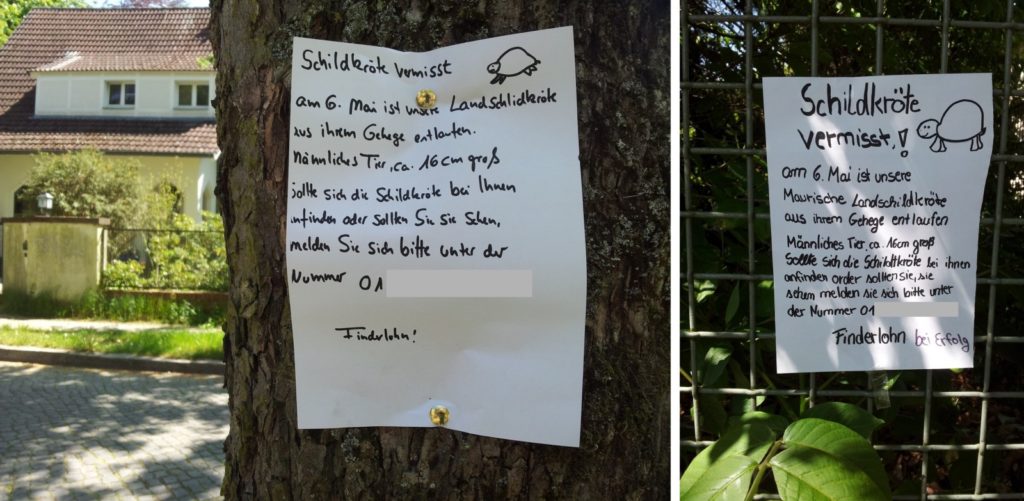 Schildkröte vermisst
am 6. Mai ist unsere Landschlidkröte
aus ihrem Gehege entlaufen.
Männliches Tier, ca. 16 cm groß
sollte sich die Schildkröte bei Ihnen
infinden oder sollten Sie sie sehen,
melden Sie sich bitte unter der
Nummer 01
Finderlohn!
Schildkröte
vermisst!
am 6. Mai ist unsere
Maurische Landschildkröte
aus ihrem Gehege entlaufen
Männliches Tier, ca. 16cm groß
Sollte sich die Schildtkröte bei ihnen
anfinden order sollten sie, sie
sehen melden sie sich bitte unter
der Nummer 01
Finderlohn bei Erfolg